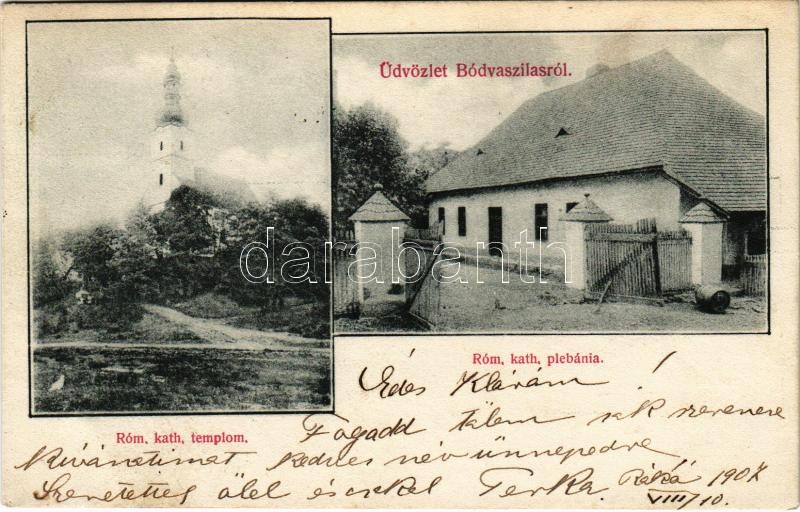 Üdvözlet Bódvaszilasról.
darabanth
Róm. kath. plebánia.
Róm. kath. templom.
Édes Klárám!
Fogadd tőlem sok szerencse
kívánatimat kedves név ünnepedre
Szeretettel ölel és csókol Terka. Rákó 1907
VIII/10.